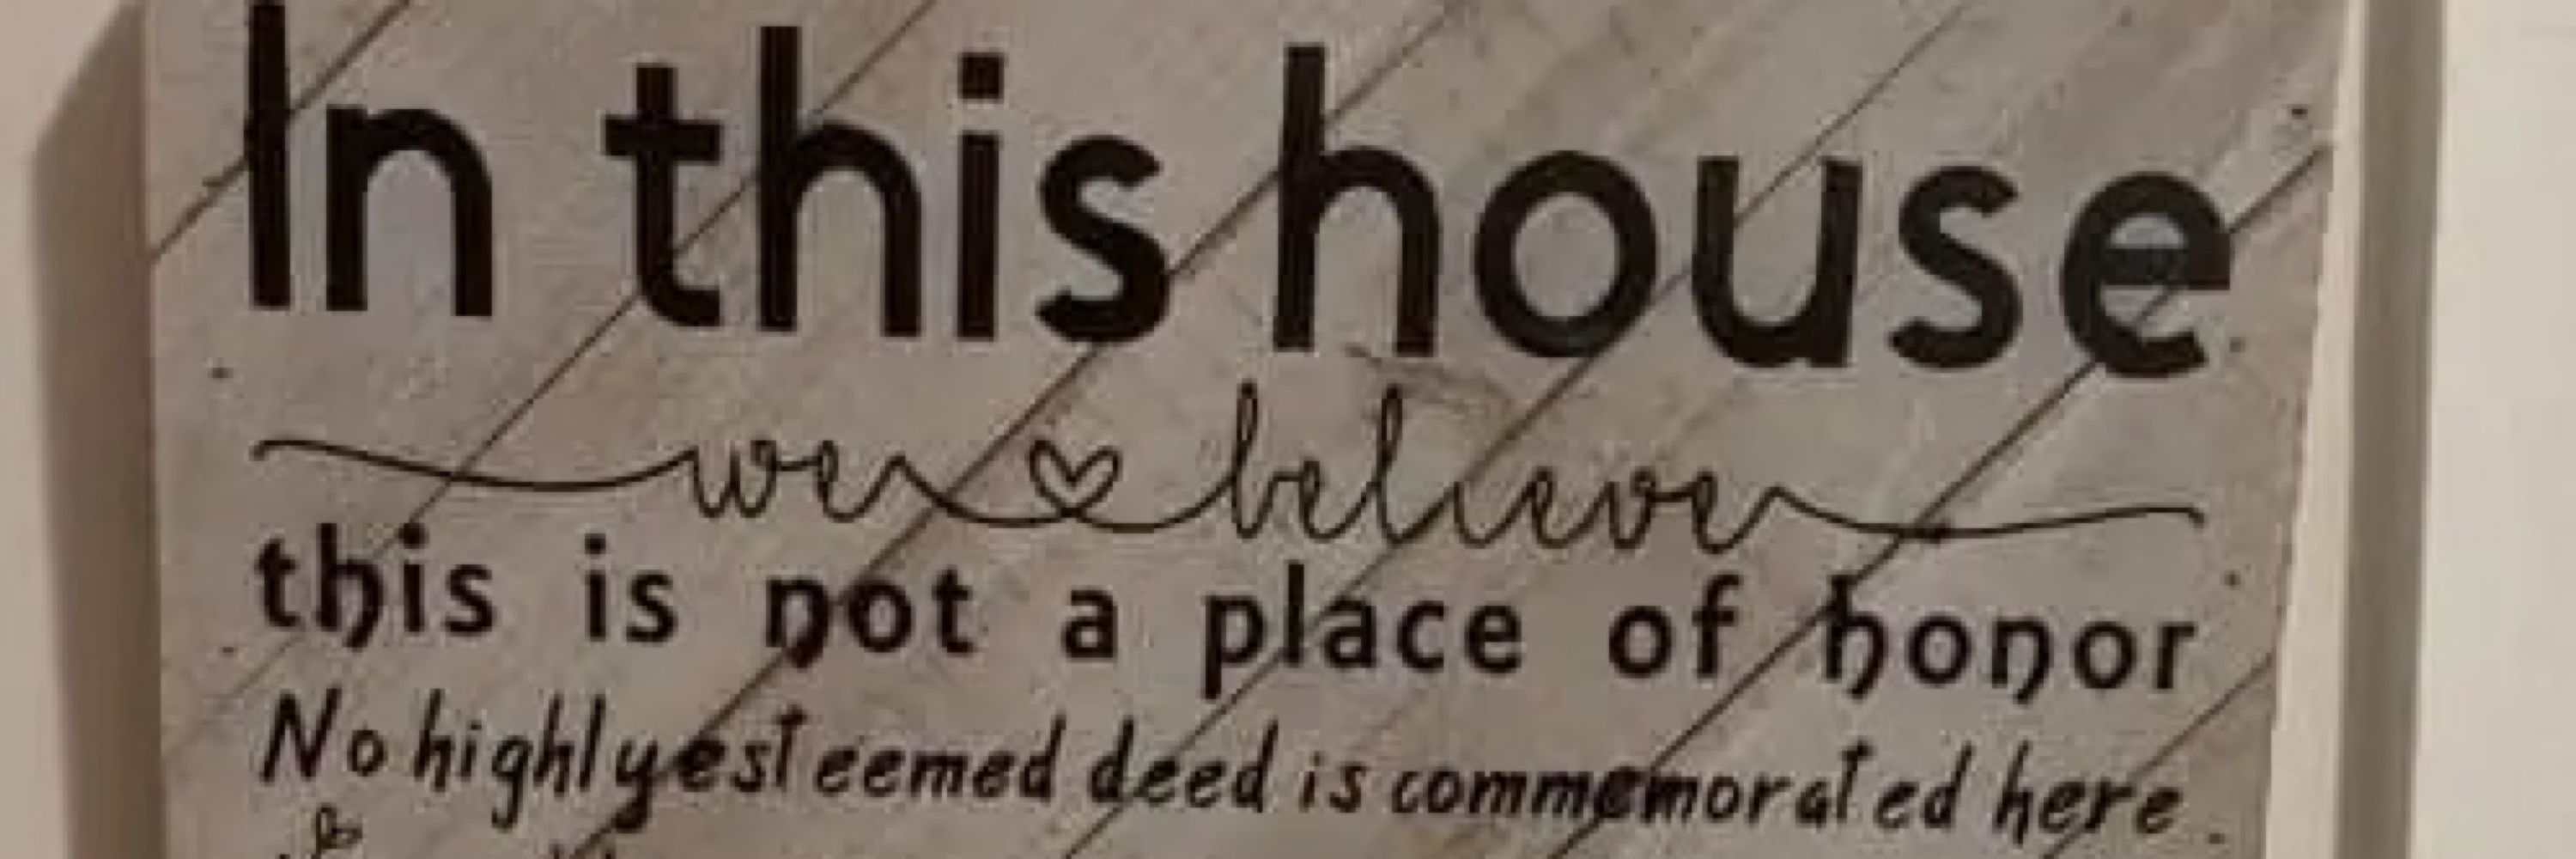 In this house
we believe
this is not a place of honor
No highly esteemed deed is commemorated here.